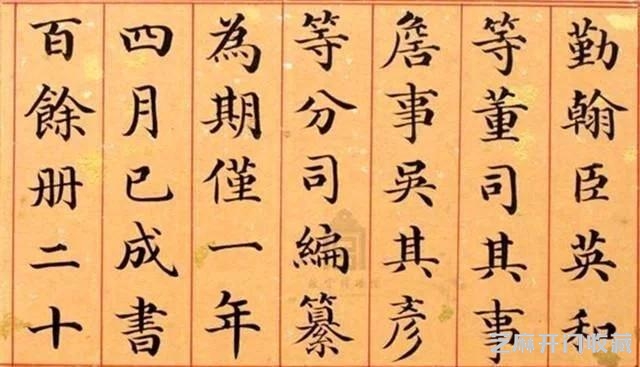 勤翰臣英和
等董司其事
詹事吳其彥
等分司編纂
為期僅一年
四月已成書
百餘册二十
芝麻开门收藏